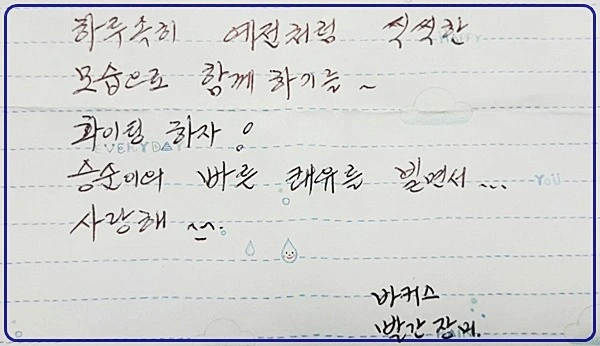 하루속히 예전처럼 씩씩한
모습으로 함께 하기를 ~
화이팅 하자 !
EVERYDAY
승순이의 빠른 쾌유를 빌면서...
YOU
사랑해 ^-^.
바커스
빨간 장미.